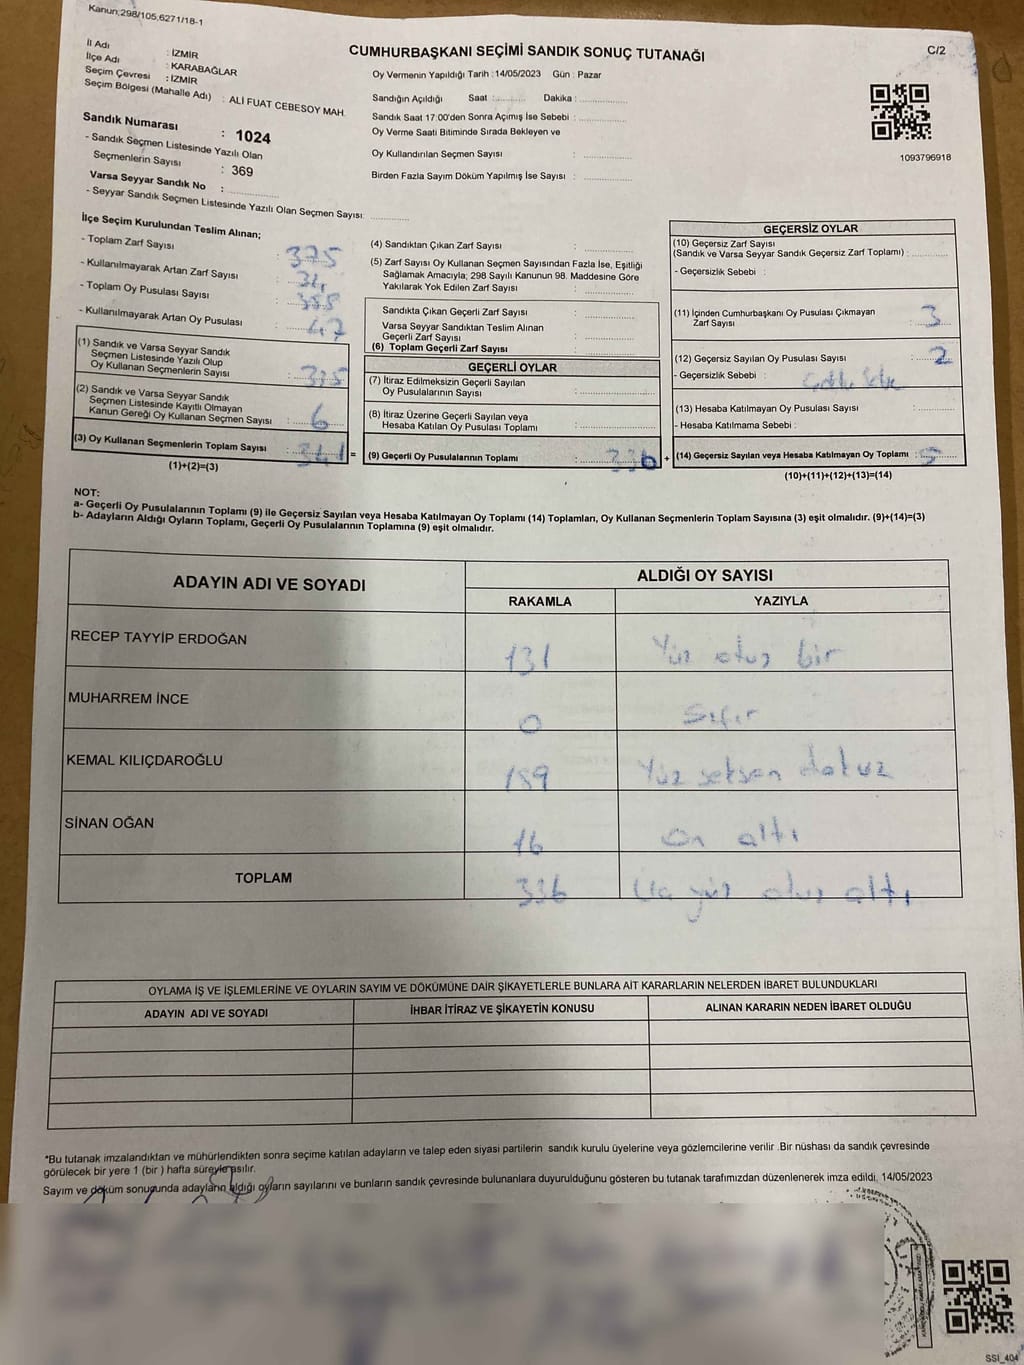 Kanun;298/105,6271/18-1
CUMHURBAŞKANI SEÇİMİ SANDIK SONUÇ TUTANAĞI
C/2
İl Adı : İZMİR
İlçe Adı : KARABAĞLAR
Seçim Çevresi : İZMİR
Seçim Bölgesi (Mahalle Adı) : ALİ FUAT CEBESOY MAH.
Oy Vermenin Yapıldığı Tarih : 14/05/2023 Gün : Pazar
Sandığın Açıldığı Saat :.......... Dakika :................
Sandık Saat 17:00'den Sonra Açımış İse Sebebi :................
Oy Verme Saati Bitiminde Sırada Bekleyen ve
Oy Kullandırılan Seçmen Sayısı :................
Birden Fazla Sayım Döküm Yapılmış İse Sayısı :................
1093796918
Sandık Numarası : 1024
- Sandık Seçmen Listesinde Yazılı Olan
Seçmenlerin Sayısı : 369
Varsa Seyyar Sandık No :................
- Seyyar Sandık Seçmen Listesinde Yazılı Olan Seçmen Sayısı: ............
İlçe Seçim Kurulundan Teslim Alınan;
- Toplam Zarf Sayısı : 375
- Kullanılmayarak Artan Zarf Sayısı :
- Toplam Oy Pusulası Sayısı :
- Kullanılmayarak Artan Oy Pusulası : 47
(1) Sandık ve Varsa Seyyar Sandık
Seçmen Listesinde Yazılı Olup
Oy Kullanan Seçmenlerin Sayısı :
(2) Sandık ve Varsa Seyyar Sandık
Seçmen Listesinde Kayıtlı Olmayan
Kanun Gereği Oy Kullanan Seçmen Sayısı : 6
(3) Oy Kullanan Seçmenlerin Toplam Sayısı : 341 =
(1)+(2)=(3)
(4) Sandıktan Çıkan Zarf Sayısı :................
(5) Zarf Sayısı Oy Kullanan Seçmen Sayısından Fazla İse, Eşitliği
Sağlamak Amacıyla; 298 Sayılı Kanunun 98. Maddesine Göre
Yakılarak Yok Edilen Zarf Sayısı :................
Sandıkta Çıkan Geçerli Zarf Sayısı :................
Varsa Seyyar Sandıktan Teslim Alınan
Geçerli Zarf Sayısı :................
(6) Toplam Geçerli Zarf Sayısı :................
GEÇERLİ OYLAR
(7) İtiraz Edilmeksizin Geçerli Sayılan
Oy Pusulalarının Sayısı :................
(8) İtiraz Üzerine Geçerli Sayılan veya
Hesaba Katılan Oy Pusulası Toplamı :................
(9) Geçerli Oy Pusulalarının Toplamı : 336 +
GEÇERSİZ OYLAR
(10) Geçersiz Zarf Sayısı
(Sandık ve Varsa Seyyar Sandık Geçersiz Zarf Toplamı) :............
- Geçersizlik Sebebi :
(11) İçinden Cumhurbaşkanı Oy Pusulası Çıkmayan
Zarf Sayısı : 3
(12) Geçersiz Sayılan Oy Pusulası Sayısı : 2
- Geçersizlik Sebebi :
(13) Hesaba Katılmayan Oy Pusulası Sayısı :............
- Hesaba Katılmama Sebebi :
(14) Geçersiz Sayılan veya Hesaba Katılmayan Oy Toplamı : 5
(10)+(11)+(12)+(13)=(14)
NOT:
a- Geçerli Oy Pusulalarının Toplamı (9) ile Geçersiz Sayılan veya Hesaba Katılmayan Oy Toplamı (14) Toplamları, Oy Kullanan Seçmenlerin Toplam Sayısına (3) eşit olmalıdır. (9)+(14)=(3)
b- Adayların Aldığı Oyların Toplamı, Geçerli Oy Pusulalarının Toplamına (9) eşit olmalıdır.
ADAYIN ADI VE SOYADI ALDIĞI OY SAYISI
RAKAMLA YAZIYLA
RECEP TAYYİP ERDOĞAN 131 Yüz otuz bir
MUHARREM İNCE 0 Sıfır
KEMAL KILIÇDAROĞLU 189 Yüz seksen dokuz
SİNAN OĞAN 16 On altı
TOPLAM 336 Üç yüz otuz altı
OYLAMA İŞ VE İŞLEMLERİNE VE OYLARIN SAYIM VE DÖKÜMÜNE DAİR ŞİKAYETLERLE BUNLARA AİT KARARLARIN NELERDEN İBARET BULUNDUKLARI
ADAYIN ADI VE SOYADI İHBAR İTİRAZ VE ŞİKAYETİN KONUSU ALINAN KARARIN NEDEN İBARET OLDUĞU
*Bu tutanak imzalandıktan ve mühürlendikten sonra seçime katılan adayların ve talep eden siyasi partilerin sandık kurulu üyelerine veya gözlemcilerine verilir .Bir nüshası da sandık çevresinde
görülecek bir yere 1 (bir ) hafta süreyle asılır.
Sayım ve döküm sonucunda adayların aldığı oyların sayılarını ve bunların sandık çevresinde bulunanlara duyurulduğunu gösteren bu tutanak tarafımızdan düzenlenerek imza edildi. 14/05/2023
SSI_404